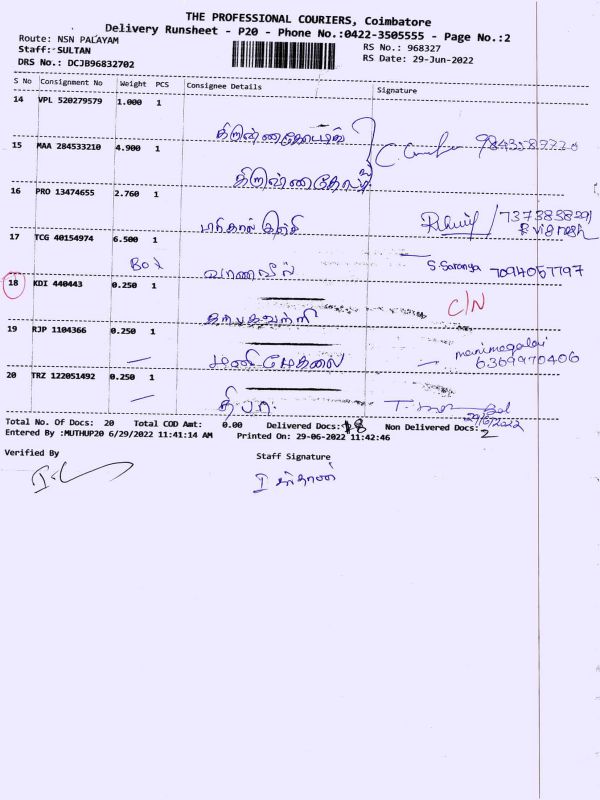 THE PROFESSIONAL COURIERS, Coimbatore
Delivery Runsheet - P20 - Phone No.:0422-3505555 - Page No.:2
Route: NSN PALAYAM
RS No.: 968327
Staff: SULTAN
RS Date: 29-Jun-2022
DRS No.: DCJB96832702
S No Consignment No Weight PCS Consignee Details Signature
14 VPL 520279579 1.000 1
15 MAA 284533210 4.900 1
16 PRO 13474655 2.760 1
7373838291
R vignesh
17 TCG 40154974 6.500 1
Box வானவில் S Saranya 7094057797
18 KDI 440443 0.250 1 C/N
கற்பகவற்றி
19 RJP 1104366 0.250 1
மணிமேகலை manimegalai
6369970406
20 TRZ 122051492 0.250 1
தீபா.
29/6/2022
Total No. Of Docs: 20 Total COD Amt: 0.00 Delivered Docs: 18 Non Delivered Docs: 2
Entered By :MUTHUP20 6/29/2022 11:41:14 AM Printed On: 29-06-2022 11:42:46
Verified By Staff Signature